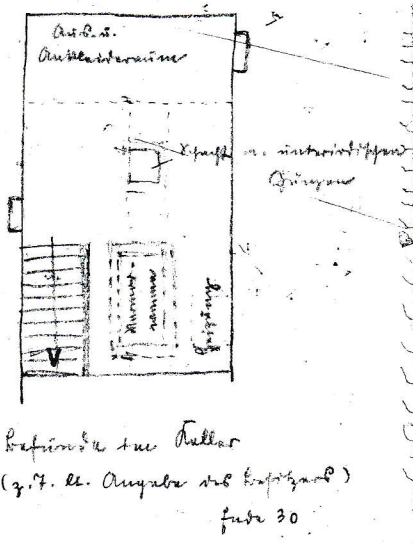 Aus- u.
Ankleideraum
Schacht u. unterirdischen
Marmor-
wannen
Heizung
Befunde im Keller
(z. T. lt. Angabe des Besitzers)
Ende 30